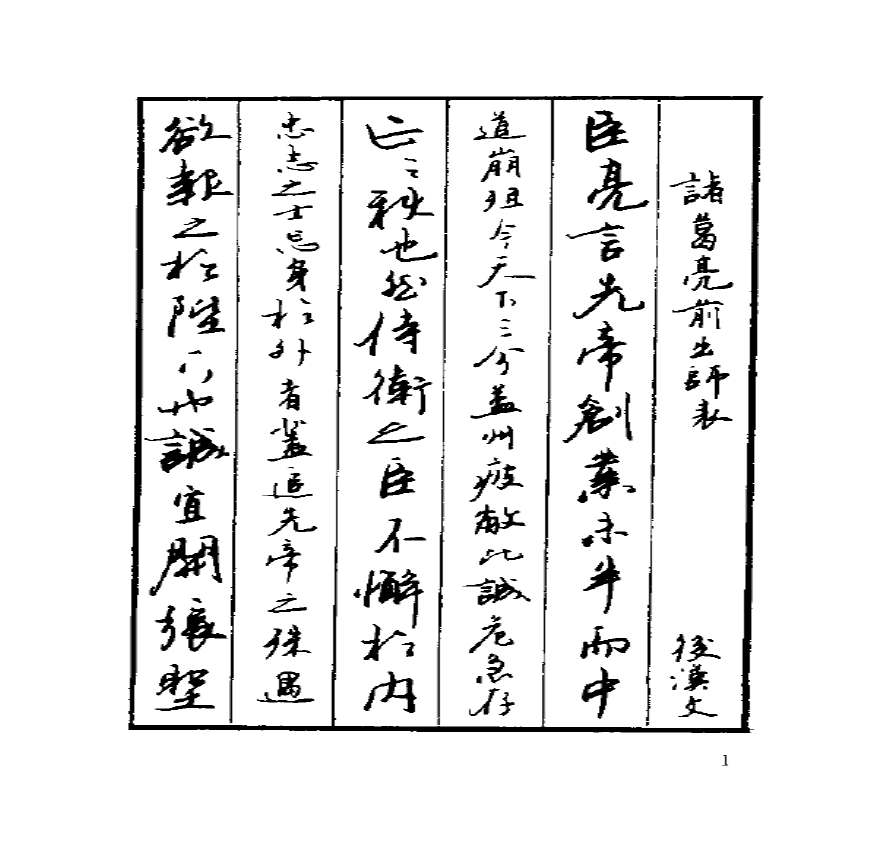 諸葛亮前出師表 後漢文
臣亮言先帝創業未半而中
道崩殂今天下三分益州疲敝此誠危急存
亡之秋也然侍衛之臣不懈於內
忠志之士忘身於外者蓋追先帝之殊遇
欲報之於陛下也誠宜開張聖
1